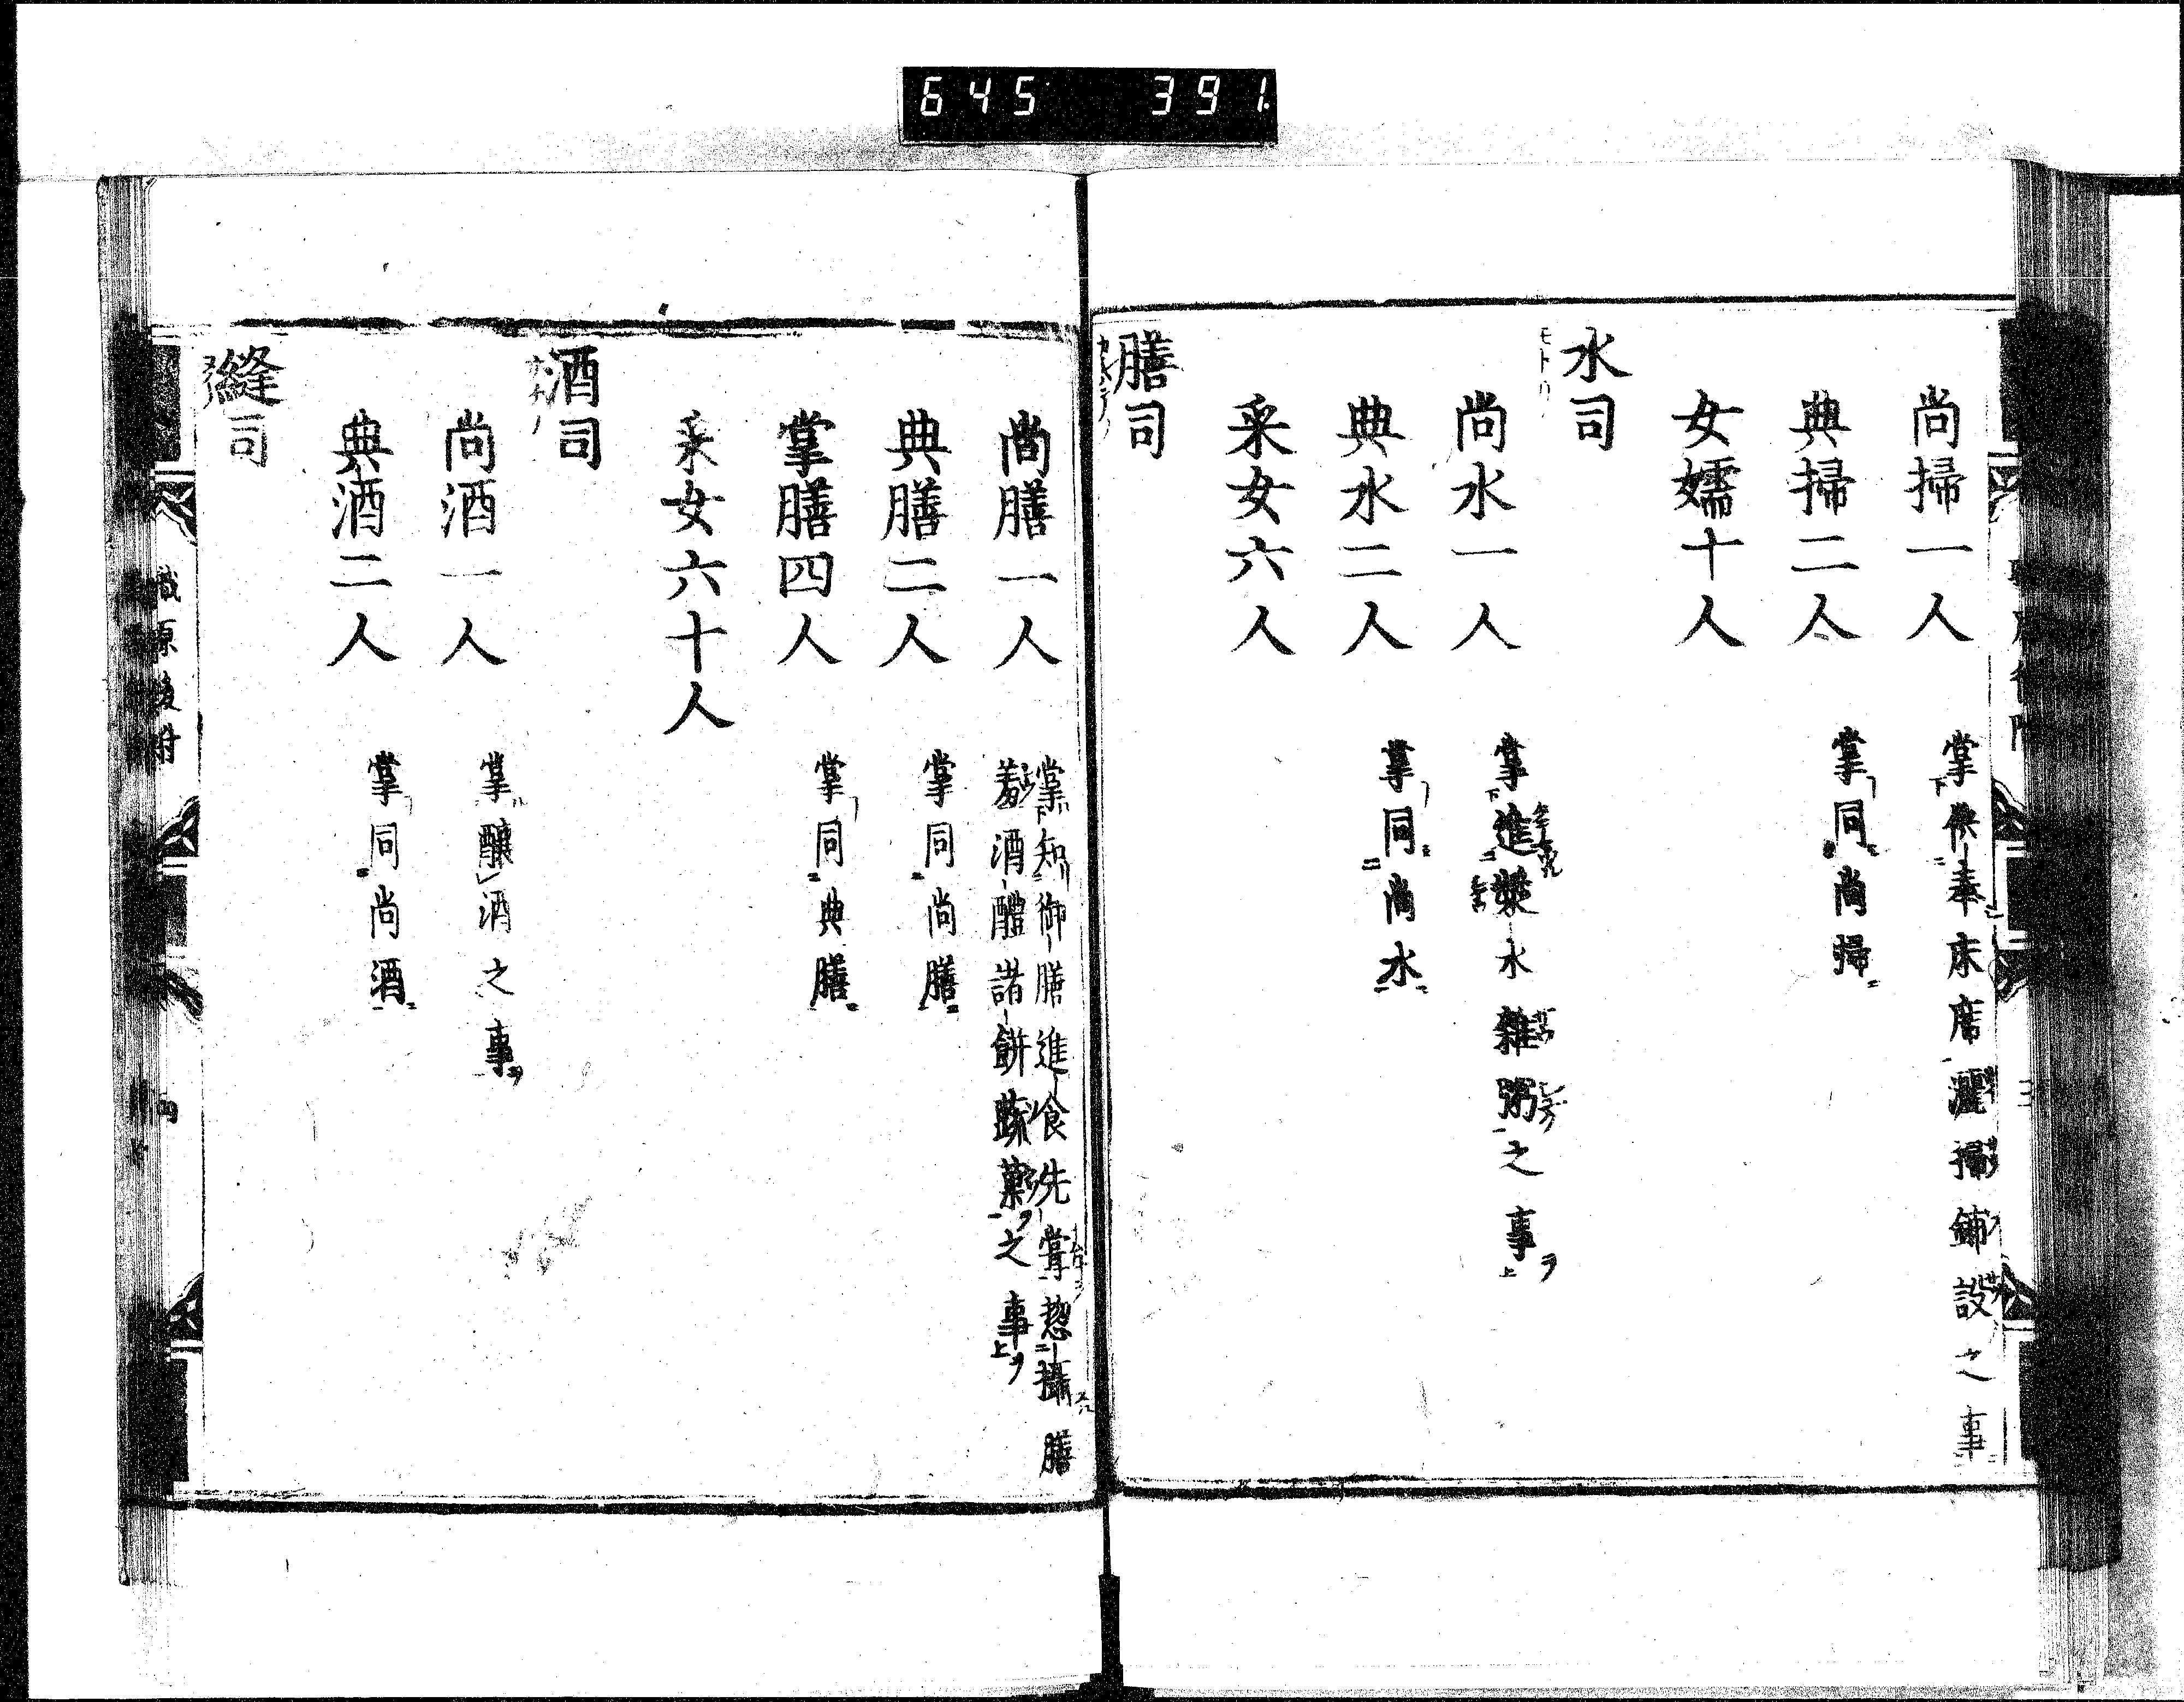 645 391
尚掃一人 掌供奉床席灑掃鋪設之事
典掃二人 掌同尚掃
女嬬十人
水司
モトリノ
尚水一人 掌進漿水雜粥之事
典水二人 掌同尚水
采女六人
膳司
尚膳一人 掌知御膳進食先嘗惣攝膳
羞酒醴諸餅蔬菓之事
典膳二人 掌同尚膳
掌膳四人 掌同典膳
采女六十人
酒司
尚酒一人 掌釀酒之事
典酒二人 掌同尚酒
縫司
職原後附 四